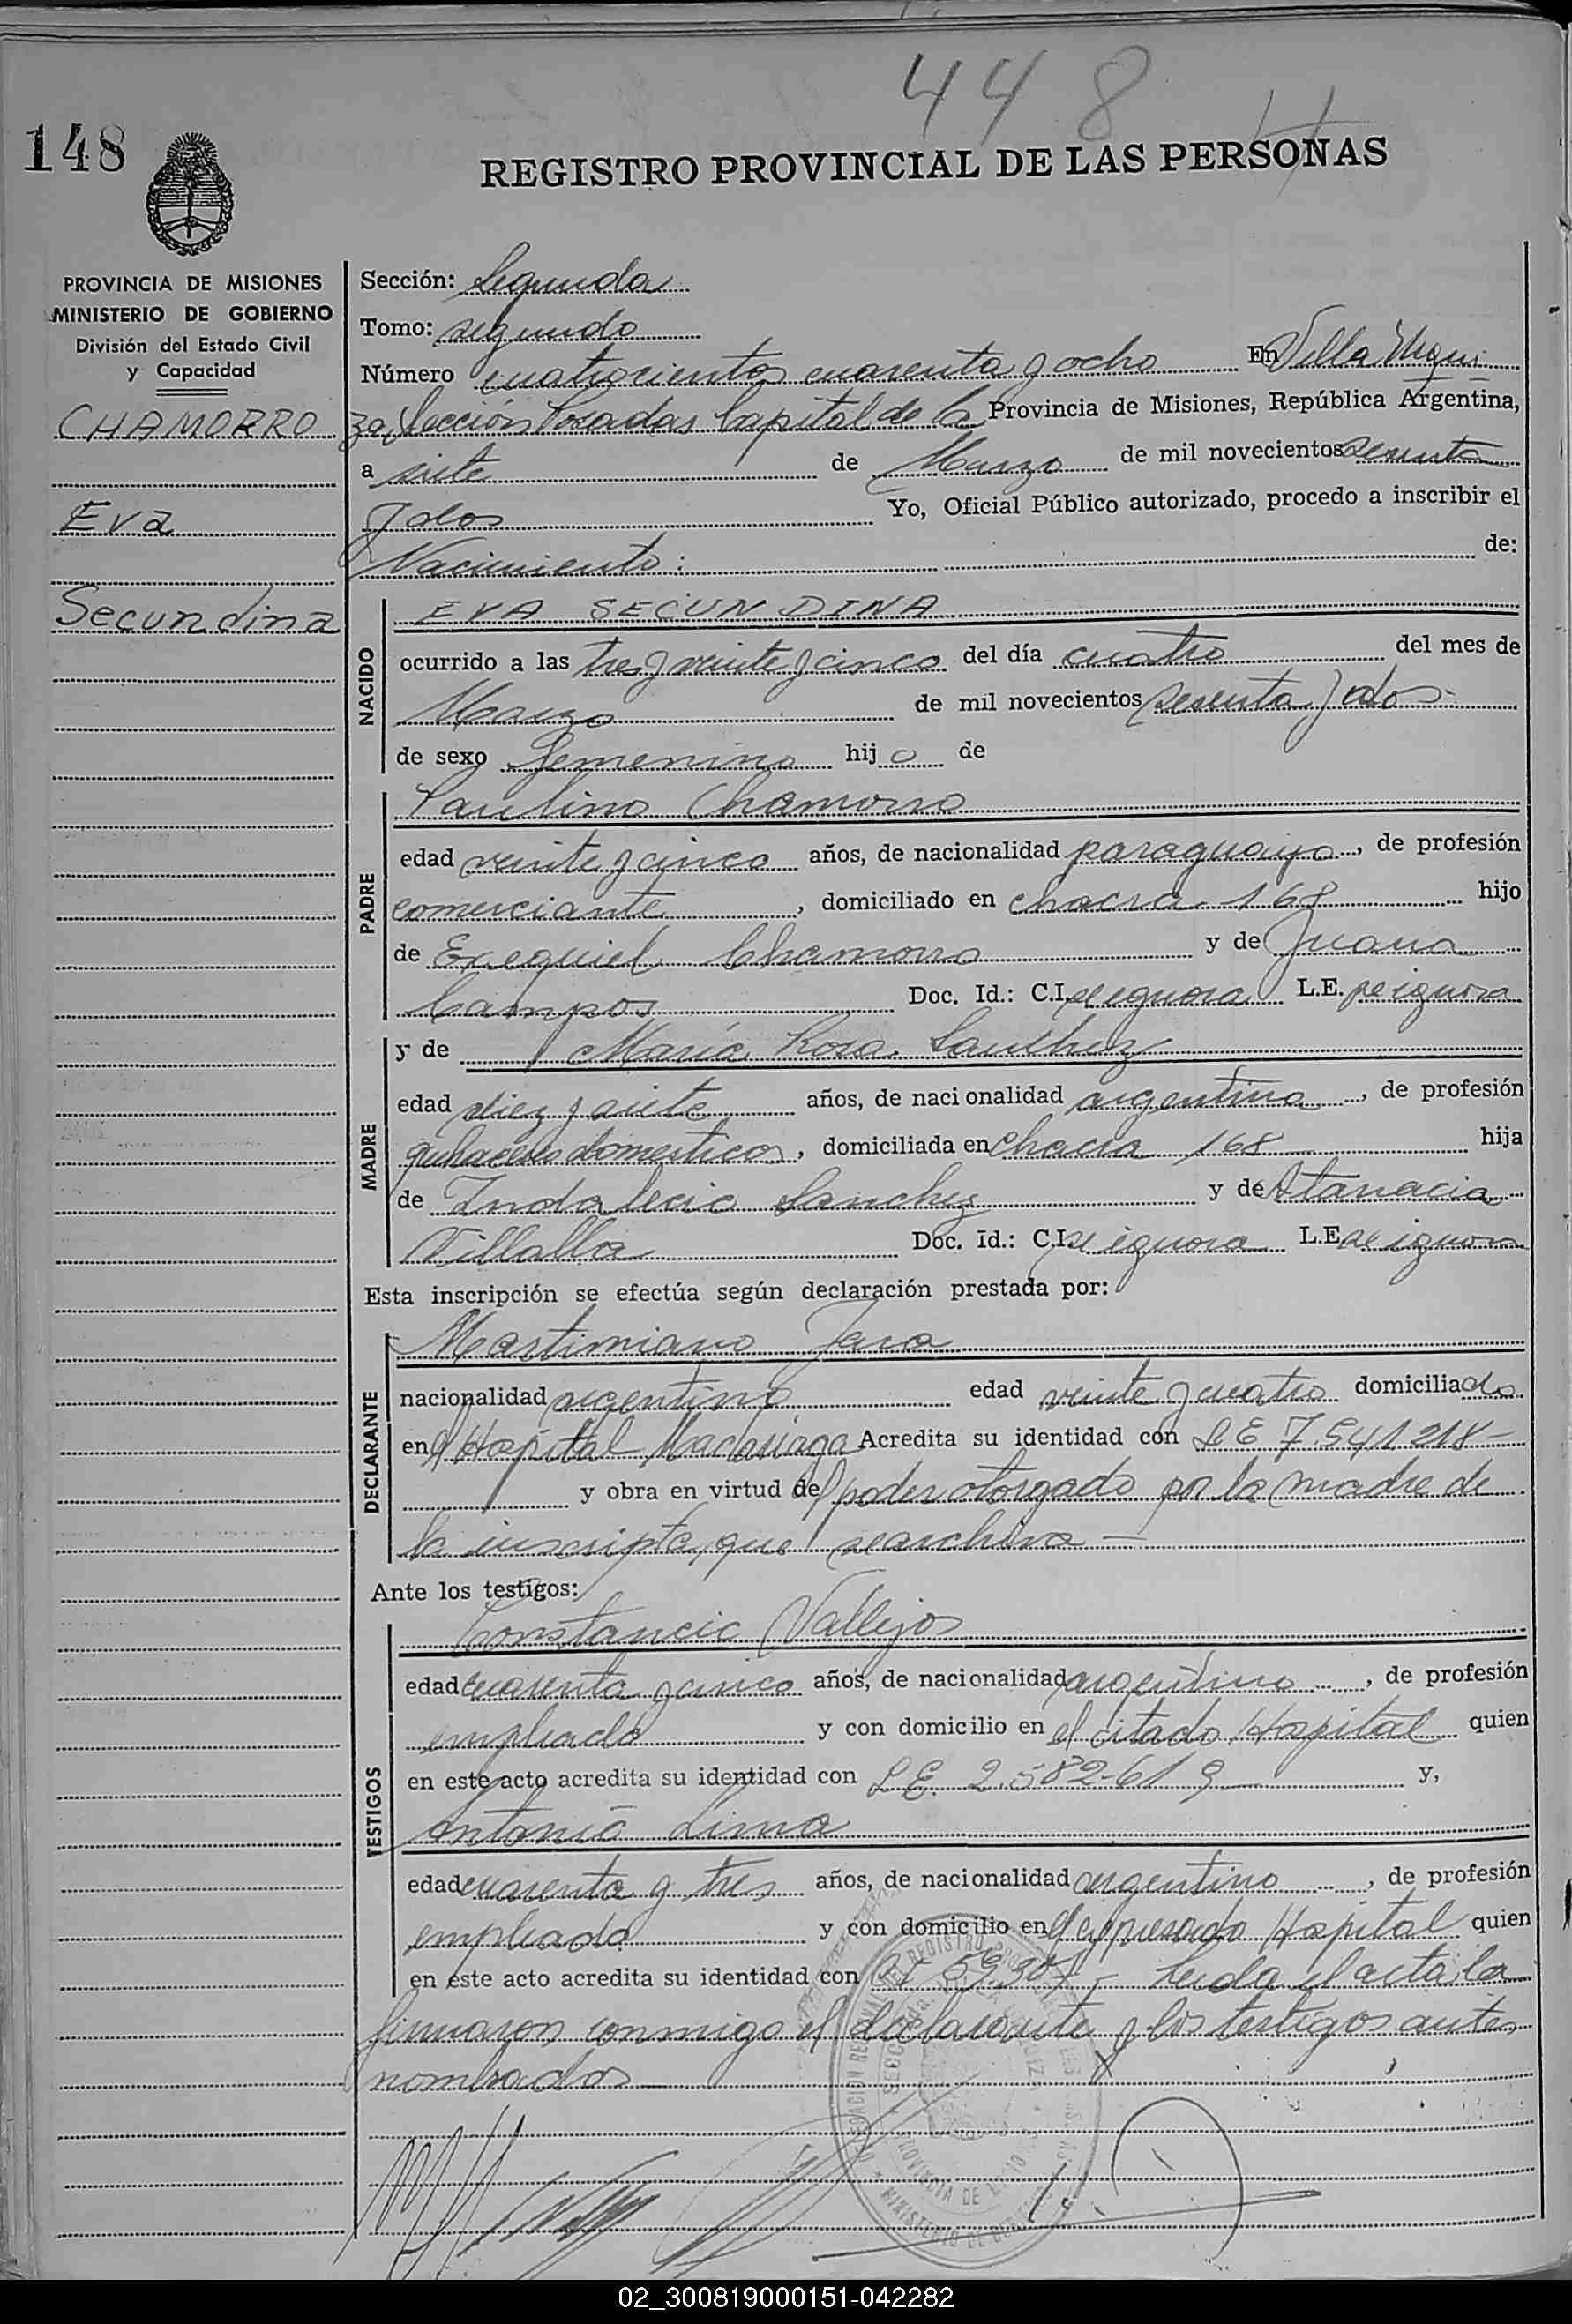 448
148
REGISTRO PROVINCIAL DE LAS PERSONAS
PROVINCIA DE MISIONES
MINISTERIO DE GOBIERNO
División del Estado Civil
y Capacidad
CHAMORRO
Eva
Secundina
Sección: Segunda
Tomo: segundo
Número cuatrocientos cuarenta y ocho En Villa Urqui
za Sección Posadas Capital de la Provincia de Misiones, República Argentina,
a siete de Marzo de mil novecientos sesenta
y dos Yo, Oficial Público autorizado, procedo a inscribir el
Nacimiento: de:
NACIDO
EVA SECUNDINA
ocurrido a las tres y veinte y cinco del día cuatro del mes de
Marzo de mil novecientos sesenta y dos
de sexo femenino hijo de
PADRE
Paulino Chamorro
edad veinte y cinco años, de nacionalidad paraguayo, de profesión
comerciante, domiciliado en chacra 168 hijo
de Exequiel Chamorro y de Juana
Campos Doc. Id.: C.I. se ignora L.E. se ignora
MADRE
y de María Rosa Sanchez
edad diez y siete años, de nacionalidad argentina, de profesión
quehaceres domesticos, domiciliada en chacra 168 hija
de Indalecio Sanchez y de Atanacia
Villalba Doc. Id.: C.I. se ignora L.E. se ignora
Esta inscripción se efectúa según declaración prestada por:
DECLARANTE
Martimiano Jara
nacionalidad argentino edad veinte y cuatro domiciliado
en el Hospital Madariaga Acredita su identidad con L E 7.541.218-
y obra en virtud del poder otorgado por la madre de
la inscripta, que se archiva —
Ante los testigos:
TESTIGOS
Constancio Vallejos
edad cuarenta y cinco años, de nacionalidad argentino, de profesión
empleado y con domicilio en el citado Hospital quien
en este acto acredita su identidad con L.E. 2.582-619 y,
Antonio Lima
edad cuarenta y tres años, de nacionalidad argentino, de profesión
empleado y con domicilio en el expresado Hospital quien
en este acto acredita su identidad con CI Leida el acta la
firmaron conmigo el declarante y los testigos antes
nombrados
02_300819000151-042282